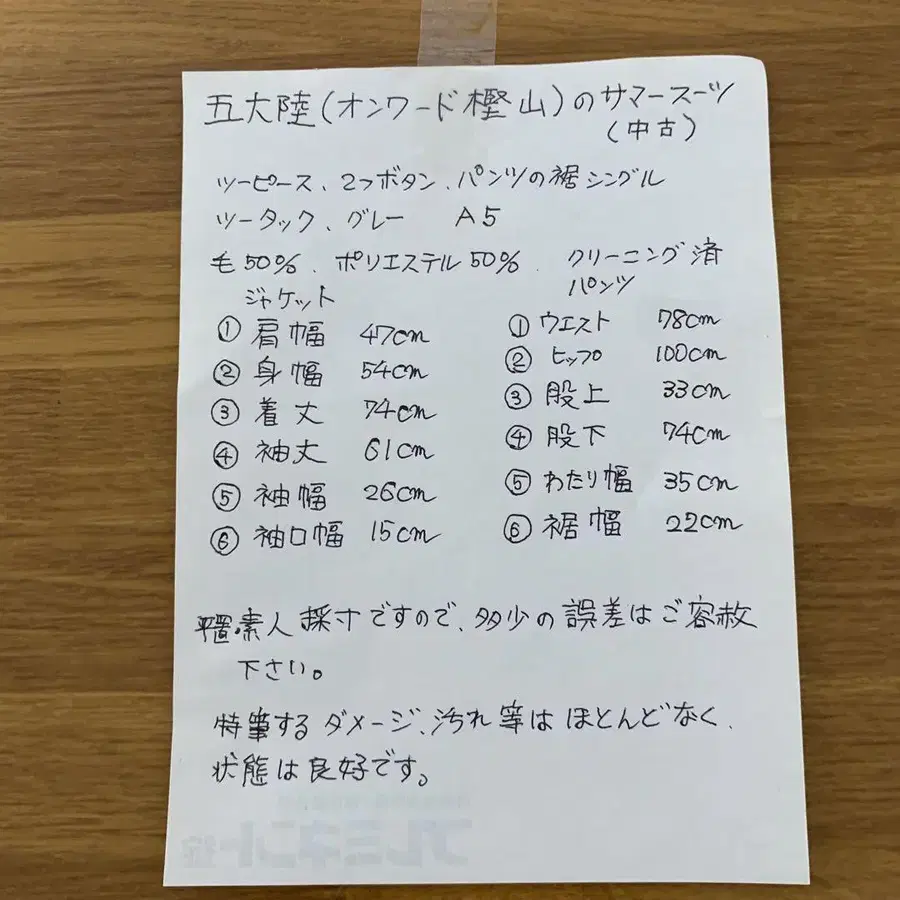 五大陸(オンワード樫山)のサマースーツ
(中古)
ツーピース、2つボタン、パンツの裾シングル
ツータック、グレー A5
毛50%、ポリエステル50%、クリーニング済
ジャケット
① 肩幅 47cm
② 身幅 54cm
③ 着丈 74cm
④ 袖丈 61cm
⑤ 袖幅 26cm
⑥ 袖口幅 15cm
パンツ
① ウエスト 78cm
② ヒップ 100cm
③ 股上 33cm
④ 股下 74cm
⑤ わたり幅 35cm
⑥ 裾幅 22cm
平置素人採寸ですので、多少の誤差はご容赦
下さい。
特筆するダメージ、汚れ等はほとんどなく、
状態は良好です。
プレミネント錠